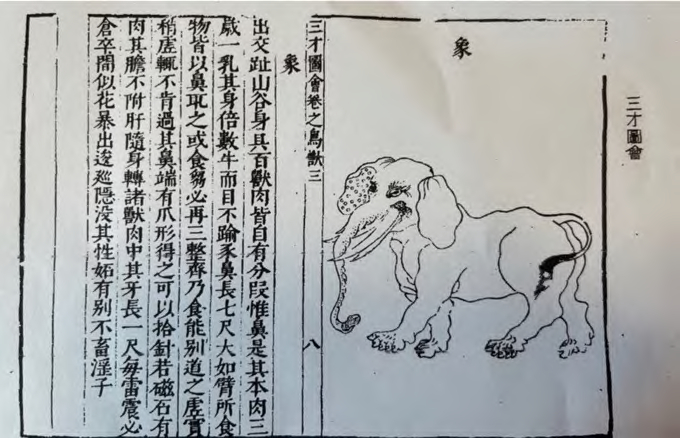 三才圖會
象
三才圖會卷之鳥獸三
八
象
出交趾山谷身具百獸肉皆自有分段惟鼻是其本肉三
歲一乳其身倍數牛而目不踰豕鼻長七尺大如臂所食
物皆以鼻取之或食芻必再三整齊乃食能別道之虛實
稍虛輒不肯過其鼻端有爪形得之可以拾針若磁石有
肉其膽不附肝隨身轉諸獸肉中其牙長一尺每雷震必
倉卒間似花暴出逡巡隱没其性妬有別不畜淫子